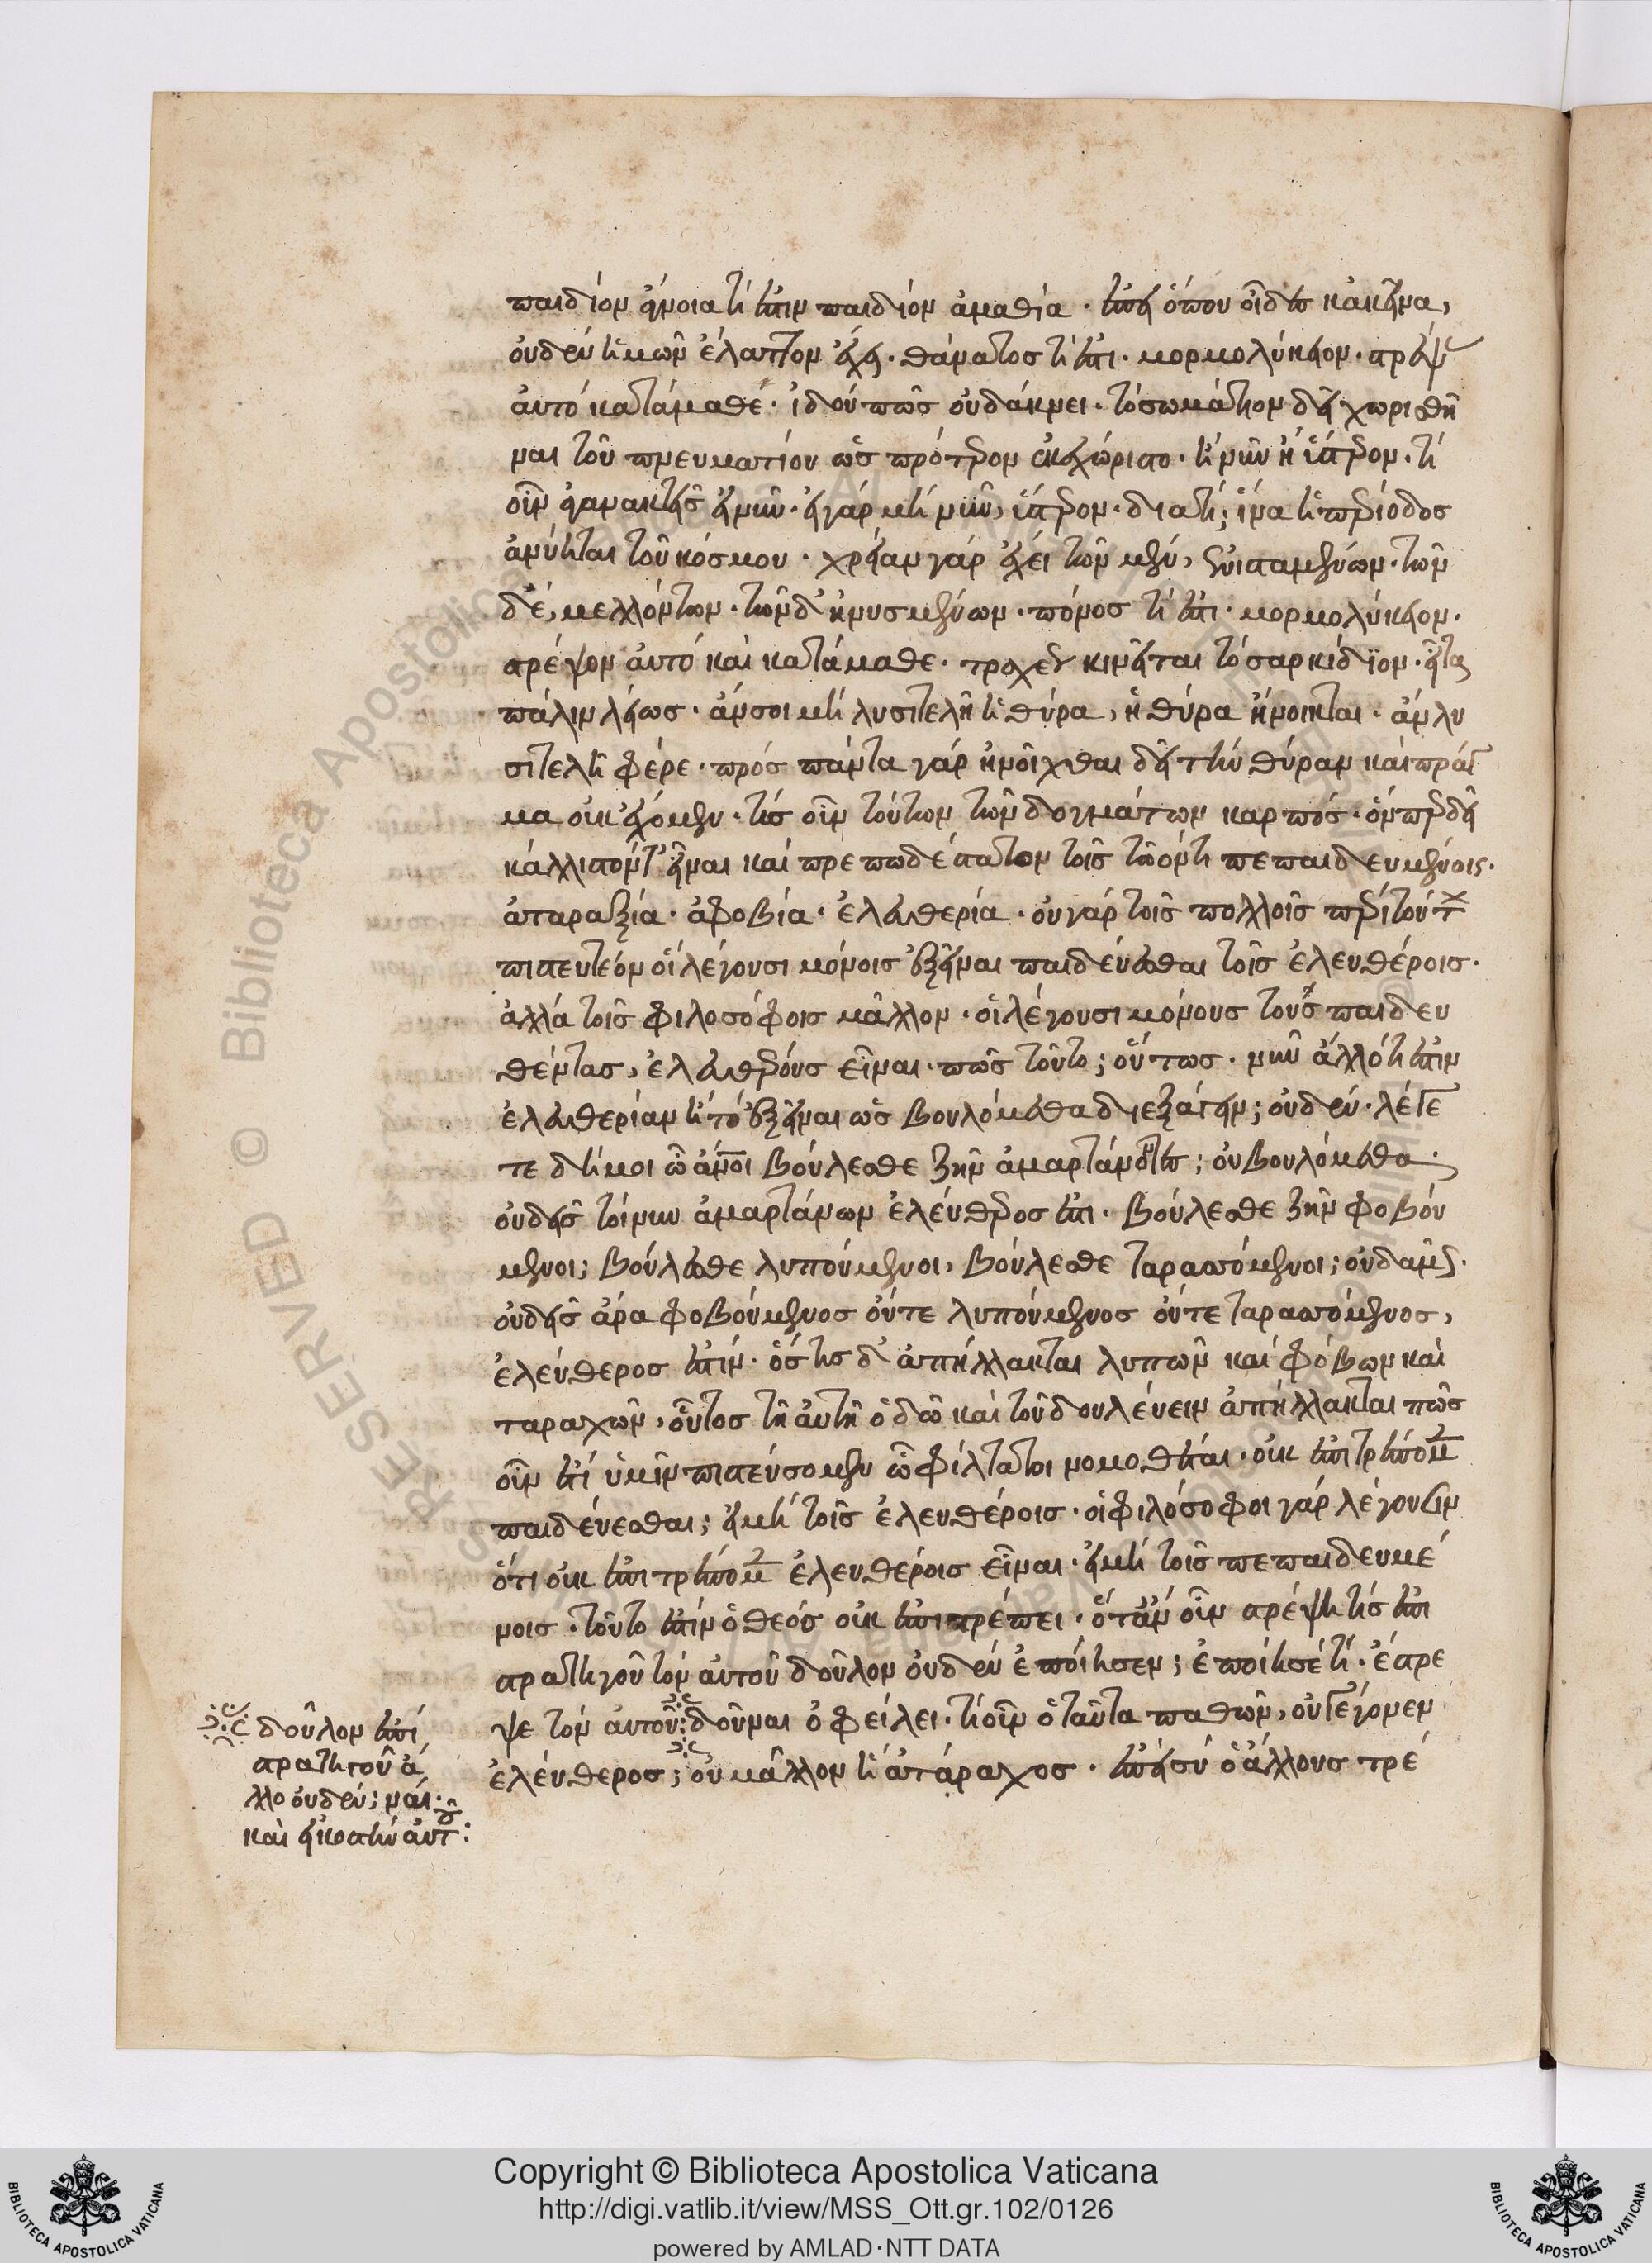 παιδίον ἄγνοια τί ἐστιν παιδίον ἀμαθία · ἐπεὶ ὅπου οἶδε κἀκεῖνα,
οὐδὲν ἡμῶν ἔλαττον ἔχει · θάνατος τί ἐστι · μορμολύκειον · στρέψ
αὐτὸ κατάμαθε · ἰδοὺ πῶς οὐ δάκνει · τὸ σωμάτιον δεῖ χωρισθῆ
ναι τοῦ πνευματίου ὡς πρότερον ἐκεχώριστο · ἢ νῦν ἢ ὕστερον · τί
οὖν ἀγανακτεῖς εἰ νῦν · εἰ γὰρ μὴ νῦν, ὕστερον · διατί; ἵνα ἡ περίοδος
ἀνύηται τοῦ κόσμου · χρείαν γὰρ ἔχει τῶν μὲν, ἐνισταμένων · τῶν
δὲ, μελλόντων · τῶν δ' ἠνυσμένων · πόνος τί ἐστι · μορμολύκειον ·
στρέψον αὐτὸ καὶ κατάμαθε · τραχέως κινεῖται τὸ σαρκίδϊον · εἶτα
πάλιν λείως · ἄν σοι μὴ λυσιτελῆ ἡ θύρα, ἡ θύρα ἤνοικται · ἂν λυ
σιτελῆ φέρε · πρὸς πάντα γὰρ ἠνοῖχθαι δεῖ τὴν θύραν καὶ πρᾶγ
μα οὐκ ἔχομεν · τίς οὖν τούτων τῶν δογμάτων καρπός · ὅνπερ δεῖ
κάλλιστόν τ' εἶναι καὶ πρεπωδέστατον τοῖς τῷ ὄντι πεπαιδευμένοις ·
ἀταραξία · ἀφοβία · ἐλευθερία · οὐ γὰρ τοῖς πολλοῖς περὶ τούτ
πιστευτέον οἳ λέγουσι μόνοις ἐξεῖναι παιδεύεσθαι τοῖς ἐλευθέροις ·
ἀλλὰ τοῖς φιλοσόφοις μᾶλλον · οἳ λέγουσι μόνους τοὺς παιδευ
θέντας, ἐλευθέρους εἶναι · πῶς τοῦτο; οὕτως · νῦν ἄλλό τί ἐστιν
ἐλευθερίαν ἢ τὸ ἐξεῖναι ὡς βουλόμεθα διεξάγειν; οὐδέν · λέγε
τε δή μοι ὦ ἄνοι βούλεσθε ζῆν ἁμαρτάνοντες; οὐ βουλόμεθα ·
οὐδεὶς τοίνυν ἁμαρτάνων ἐλεύθερος ἐστι · βούλεσθε ζῆν φοβού
μενοι; βούλεσθε λυπούμενοι, βούλεσθε ταρασσόμενοι; οὐδαμῶς ·
οὐδεὶς ἄρα φοβούμενος οὔτε λυπούμενος οὔτε ταρασσόμενος,
ἐλεύθερος ἐστιν · ὅστις δ' ἀπήλλακται λυπῶν καὶ φόβων καὶ
ταραχῶν, οὗτος τῇ αὐτῇ ὁδῷ καὶ τοῦ δουλεύειν ἀπήλλακται πῶς
οὖν ἔτι ὑμῖν πιστεύσομεν ὦ φίλτατοι νομοθέται · οὐκ ἐπιτρέπομεν
παιδεύεσθαι; εἰ μὴ τοῖς ἐλευθέροις · οἱ φιλόσοφοι γὰρ λέγουσιν
ὅτι οὐκ ἐπιτρέπομεν ἐλευθέροις εἶναι · εἰ μὴ τοῖς πεπαιδευμέ
νοις · τοῦτό ἐστιν ὁ θεὸς οὐκ ἐπιτρέπει · ὅταν οὖν στρέψῃ τίς ἐπὶ
στρατηγοῦ τὸν αὐτοῦ δοῦλον οὐδὲν ἐποίησεν; ἐποίησέ τί · ἔστρε
ψε τὸν αὐτοῦ: δοῦναι ὀφείλει · τί οὖν ὁ ταῦτα παθὼν, οὐ γέγονεν
ἐλεύθερος; οὐ μᾶλλον ἢ ἀτάραχος · ἐπεὶ σὺ ὁ ἄλλους τρέ
δοῦλον ἐπὶ
στρατηγοῦ ἄ
λλο οὐδέν; ναί ·
καὶ εἰκοστὴν αὐτοῦ:
Copyright © Biblioteca Apostolica Vaticana
http://digi.vatlib.it/view/MSS_Ott.gr.102/0126
powered by AMLAD·NTT DATA